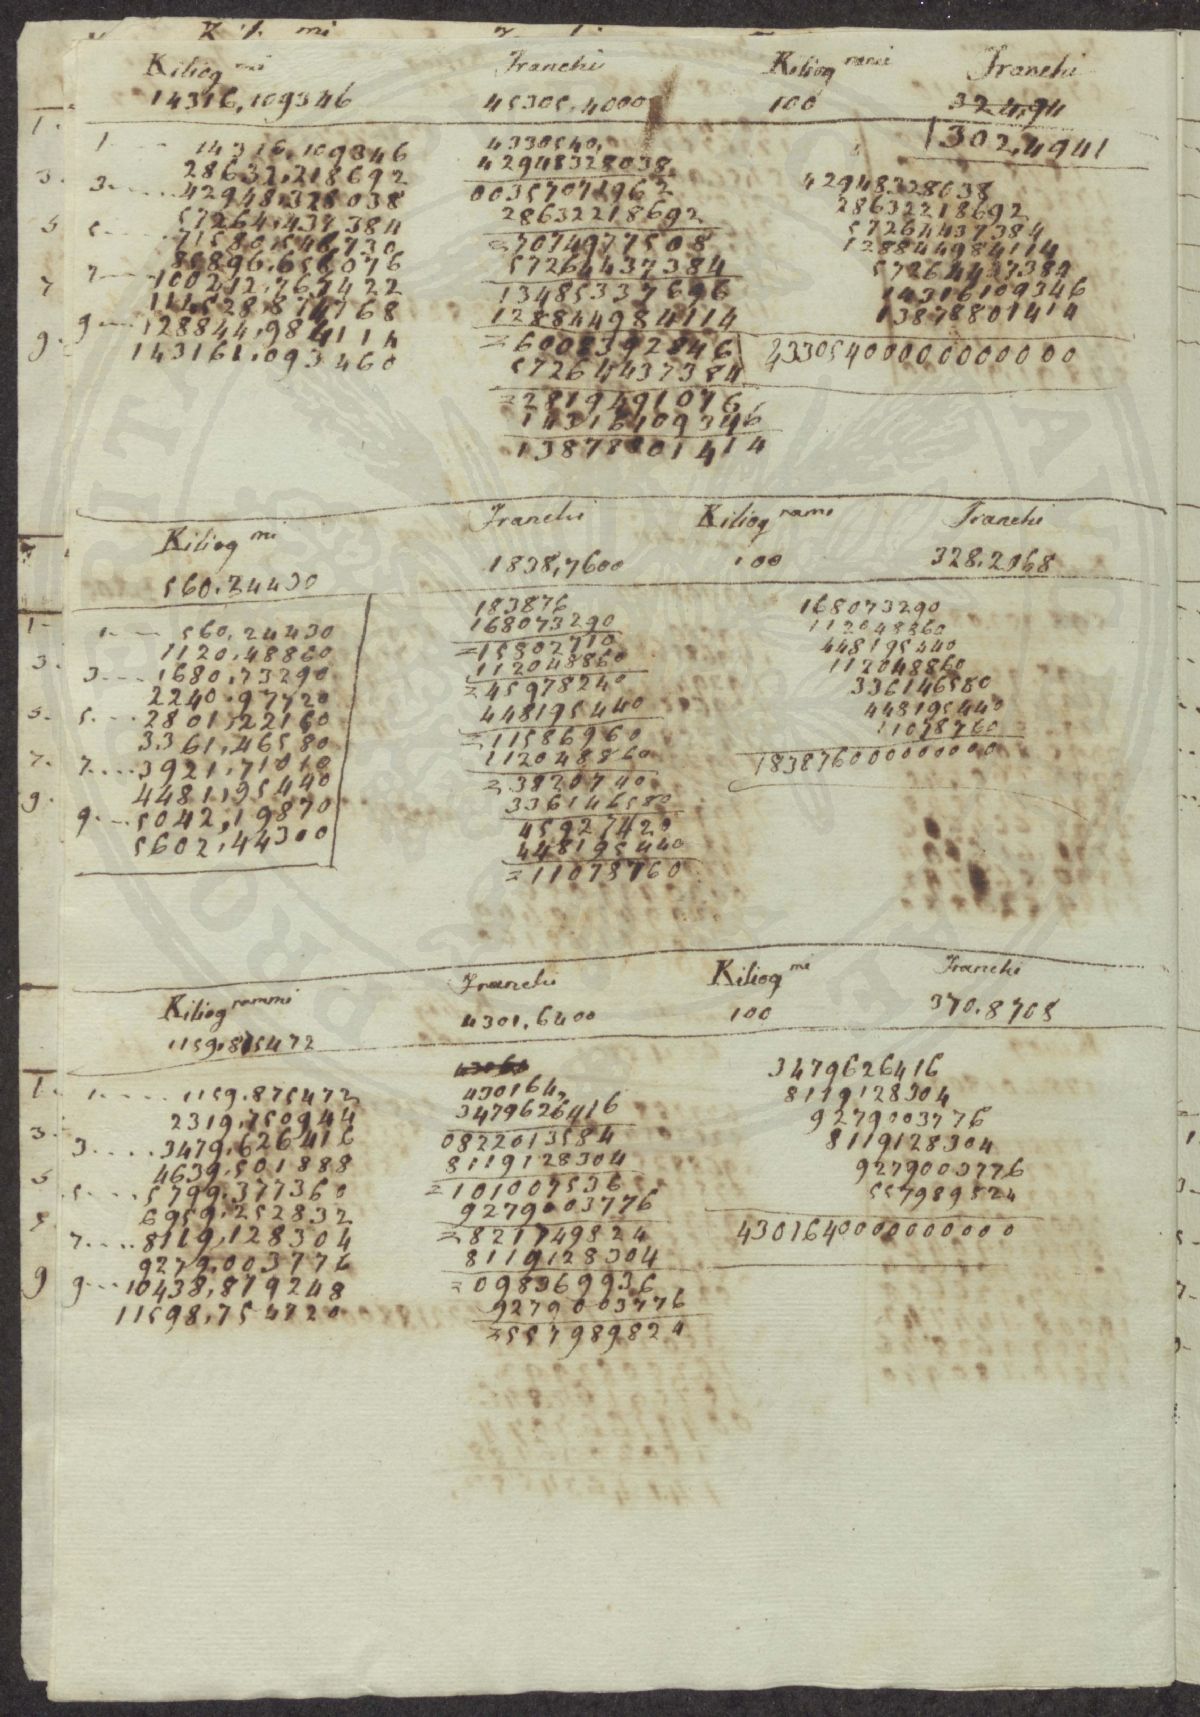 Kiliog mi Franchi Kiliog rami Franchi
14316,109346 45305,4000 100 324,94
302,4941
1 14316,109346
28632,218692
3 42948,328038
57264,437384
5 71580,546,730
85896,656076
7 100212,767422
114528,874768
9 128844,984114
143161,093460
4330540,
42948328038
00357071962
28632218692
=7074977508
57264437384
13485337696
128844984114
=6008392846
57264437384
=2819491076
14316109346
13878801414
42948328038
28632218692
57264437384
128844984114
57264437384
14316109346
13878801414
4330540000000000
Kiliog mi Franchi Kiliog rami Franchi
560.24430 1838,7600 100 328.2068
1 560,24430
1120,48860
3 1680,73290
2240.97720
5 2801,22160
3361,46580
7 3921,71010
4481,95440
9 5042,19870
5602,44300
183876
168073290
=15802710
112048860
=45978240
448195440
=11586960
112048860
=3820740
336146580
45927420
448195440
=11078760
168073290
112048860
448195440
112048860
336146580
448195440
11078760
18387600000000
Kiliog rammi Franchi Kiliog mi Franchi
1159.875472 4301,6400 100 370.8705
1 1159.875472
2319,750944
3 3479,626416
4639,501888
5 5799,377360
6959,252832
7 8119,128304
9279,003776
9 10438,879248
11598,754720
430164,
3479626416
0822013584
8119128304
=101007536
9279003776
=821749824
8119128304
=098369936
9279003776
=557989824
3479626416
8119128304
9279003776
8119128304
9279003776
557989824
4301640000000000